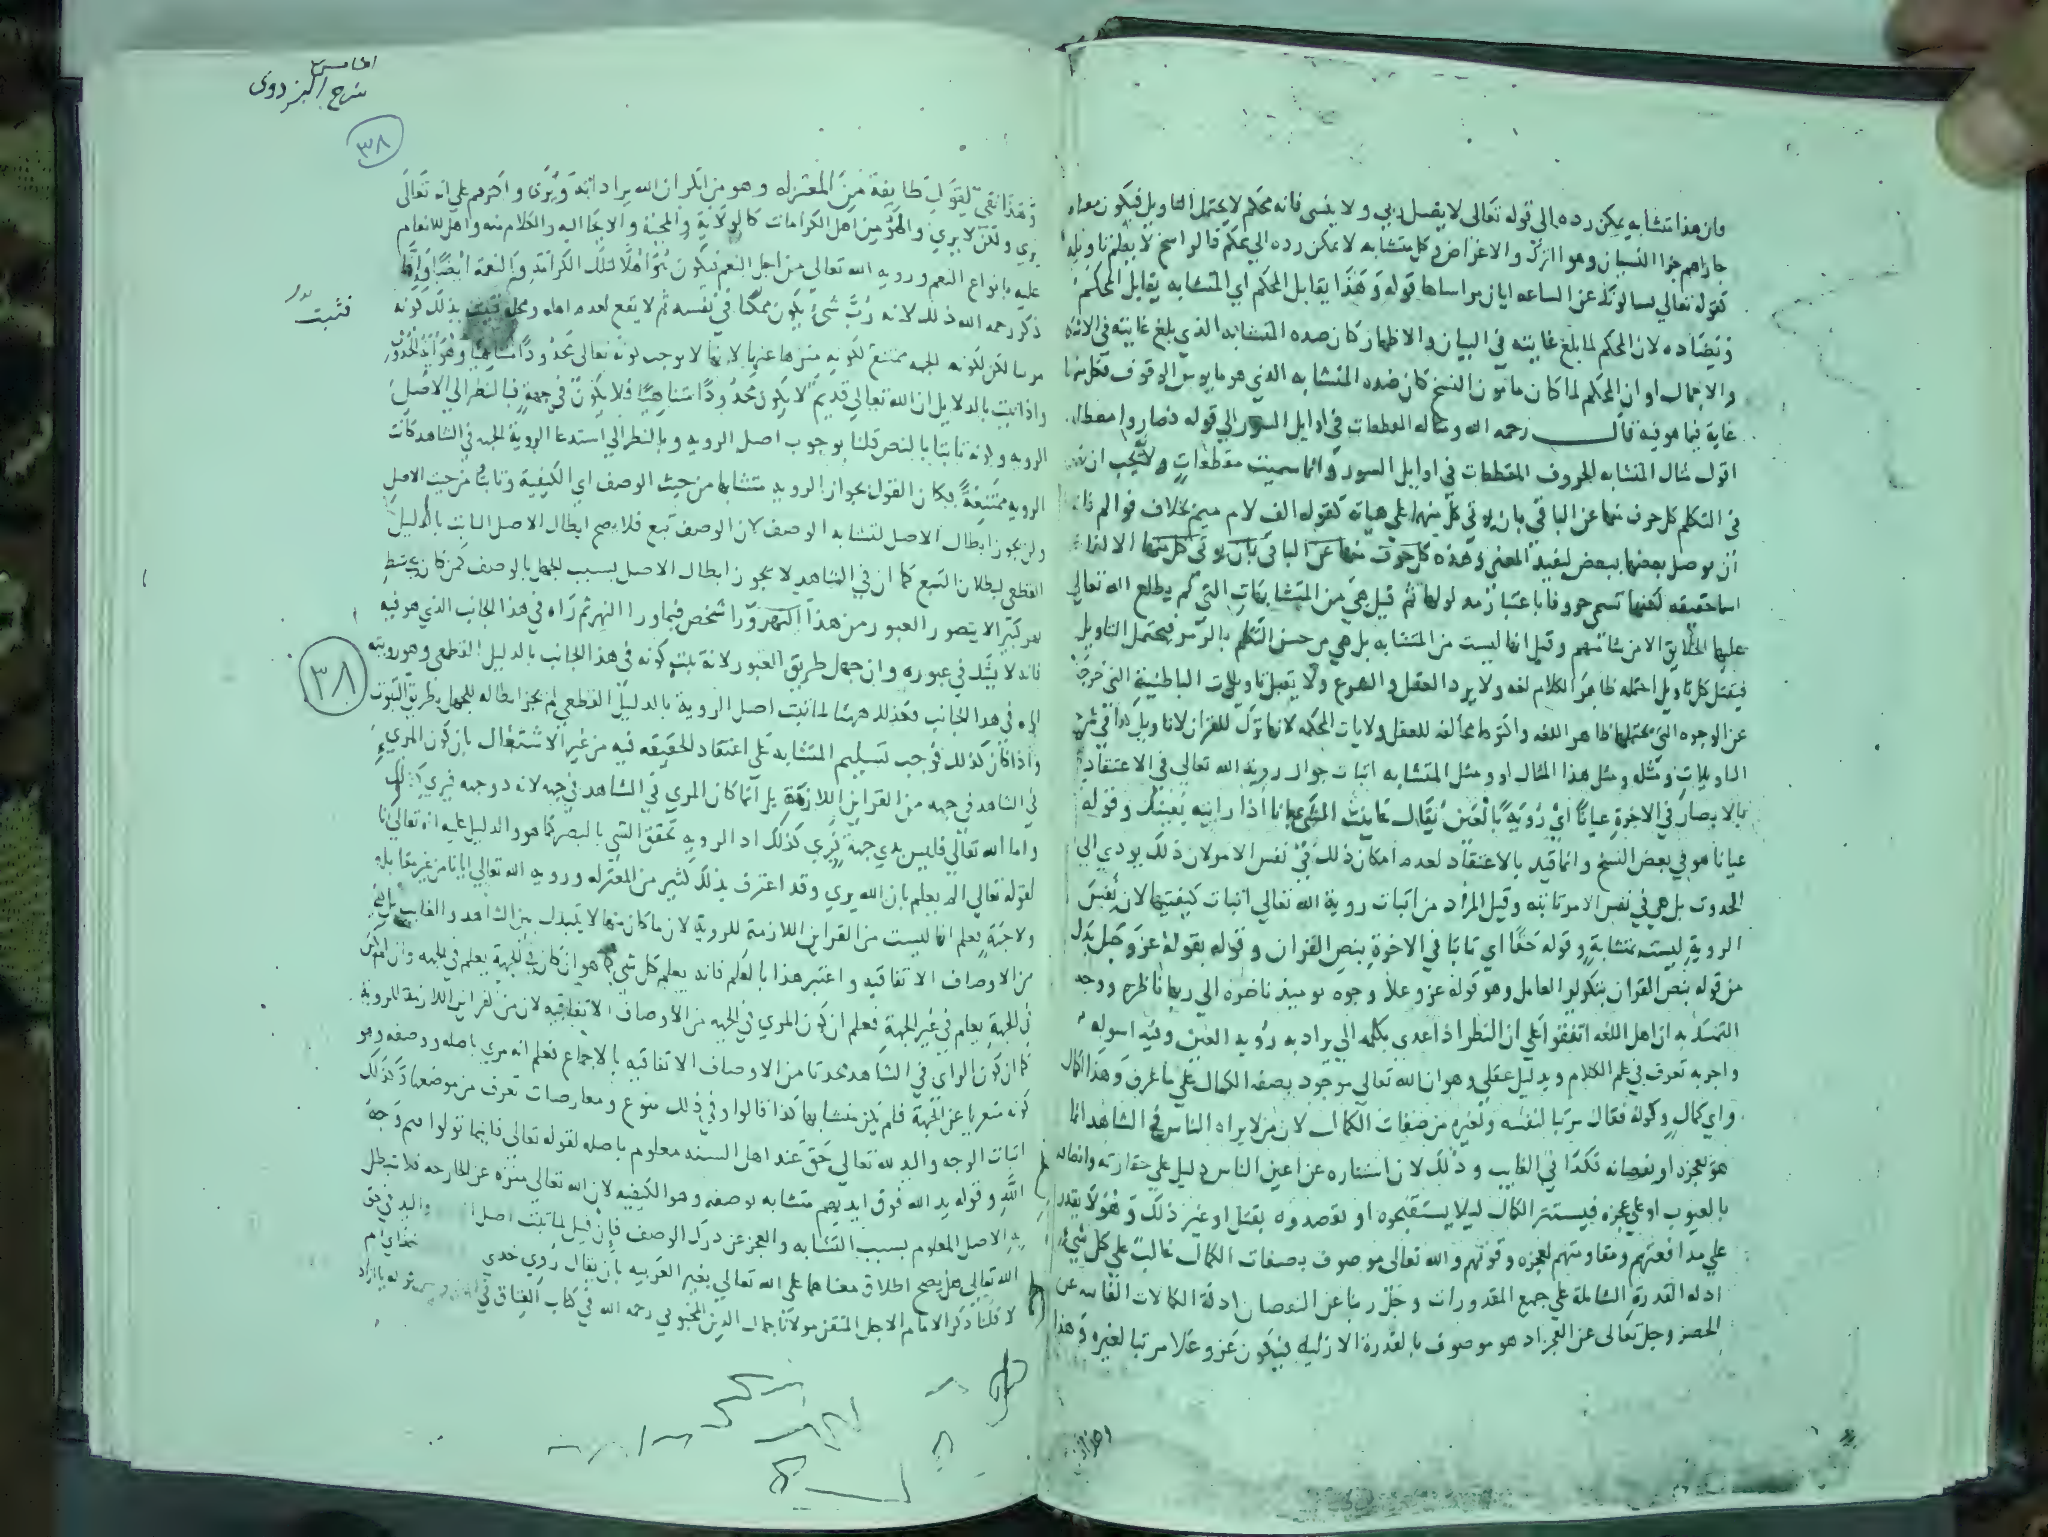 فان هذا متشابه يمكن رده الى قوله تعالى لا يضل ربي ولا ينسى فانه محكم لا يحتمل التاويل فيكون معناه
جازاهم جزا النسيان وهو الترك والاعراض وكل متشابه لا يمكن رده الي محكم قالراسخ لا يعلم تاويله
كقوله تعالي يسالونك عن الساعه ايان مرساها قوله وهذا يقابل المحكم اي المتشابه يقابل المحكم
ويضاده لان المحكم لما بلغ غايته في البيان والاظهار كان ضده المتشابه الذي بلغ غايته في
والاجمال او ان المحكم لما كان مامون النسخ كان ضده المتشابه الذي هو مايوس الوقوف فكل منهما
غاية فيما هو فيه قال رحمه الله ومثاله المقطعات في اوايل السور الي قوله فصاروا معطله
اقول مثال المتشابه الحروف المقطعات في اوايل السور وانما سميت مقطعات لانه يجب ان
في التكلم كل حرف منها عن الباقي بان يوتي كل منها علي هياته كقوله الف لام ميم بخلاف قوالم فان
ان يوصل بعضها ببعض ليفيد المعنى وهذه
اسما حقيقه لكنها تسمي حروفا باعتبار مدلولها ثم قيل هي من المتشابهات التي لم يطلع الله تعالي
عليها الخلايق الا من شا منهم وقيل انها ليست من المتشابه بل هي من حسن التكلم بالرمز فيحتمل التاويل
فيقبل كل تاويل احتمله ظاهر الكلام لغه ولا يرد العقل والشرع ولا يقبل تاويلات الباطنية التي خرجت
عن الوجوه التي يحتملها ظاهر اللغه واكثرها مخالفه للعقل ولايات المحكمه لانها ترك للقران لا تاويل كذا في شرح
التاويلات ومثله ومثل هذا المثال او ومثل المتشابه اثبات جواز روية الله تعالي في الاعتقاد
بالابصار في الاخرة عيانا اي روية بالعين يقال عاينت الشي عيانا اذا رايته بعينك وقوله
عيانا هو في بعض النسخ وانما قيد بالاعتقاد لعدم امكان ذلك في نفس الامر لان ذلك يودي الي
الحدوث بل هي في نفس الامر ثابته وقيل المراد من اثبات روية الله تعالي اثبات كيفيتها لان نفس
الروية ليست متشابه وقوله حقا اي ثابتا في الاخرة بنص القران وقوله بقوله عز وجل بدل
من قوله بنص القران بتكرير العامل وهو قوله عز وعلا وجوه يوميذ ناضرة الي ربها ناظره ووجه
التمسك به ان اهل اللغه اتفقوا علي ان النظر اذا عدي بكلمه الي يراد به روية العين وفيه اسوله
واجوبه تعرف في علم الكلام وبدليل عقلي وهو ان الله تعالي موجود بصفه الكمال علي ما عرف وهذا الكمال
واي كمال وكونه تعالى مرئيا لنفسه ولغيره من صفات الكمال لان من لا يراه الناس في الشاهد انما
هو لعجزه او نقصانه فكذا في الغايب وذلك لان استتاره عن اعين الناس دليل علي حقارته واتصافه
بالعيوب او علي عجزه فيستتر الكمال ليلا يستقبحوه او يقصدوه بقتل او غير ذلك وهو لا يقدر
علي مدافعتهم ومقاومتهم لعجزه وقوتهم والله تعالى موصوف بصفات الكمال غالب علي كل شيء
اذ له القدرة الشاملة علي جميع المقدورات وجل ربنا عن النقصان اذ له الكمالات الفايته عن
الحصر وجل تعالى عن العجز اذ هو موصوف بالقدرة الازليه فيكون عز وعلا مرئيا لغيره وهذا
وهذا نفي
الخامس
شرح البزدوى
٣٨
وهذا نفي لقول طايفة من المعتزله وهو من انكر ان الله يرا ذاته ويرى واكثرهم علي انه تعالى
يرى ولكن لا يري والمؤمن اهل الكرامات كالولاية والمحبة والايحا اليه والكلام منه واهل للانعام
عليه بانواع النعم وروية الله تعالي من اجل النعم فيكون اهلا لتلك الكرامة والنعمة ايضا وانما
ذكر رحمه الله ذلك لانه رب شيء يكون ممكنا في نفسه ثم لا يقع لعدم اهله ومحله فثبت بذلك كونه
فثبت
مرييا لكن لكونه الجهه ممتنع لكونه منزها عنها لانها لا توجب كونه تعالى محدودا متناهيا وهو
واذا ثبت بالدلايل ان الله تعالي قديم لا يكون محدودا متناهيا فلا يكون في جهة فبالنظر الي الاصل
الرويه وكونه ثابتا بالنص قلنا بوجوب اصل الرويه وبالنظر الي استدعا الروية الجهه في الشاهد كانت
الرويه ممتنعة فكان القول بجواز الرويه متشابها من حيث الوصف اي الكيفية وثابتا من حيث الاصل
ولن يجوز ابطال الاصل لتشابه الوصف لان الوصف تبع فلا يصح ابطال الاصل الثابت بالدليل
القطعي لبطلان التبع كما ان في الشاهد لا يجوز ابطال الاصل بسبب الجهل بالوصف كمن كان علي شط
نهر كبير لا يتصور العبور من هذا النهر وراا شخص فيما ورا النهر ثم رآه في هذا الجانب الذي هو فيه
فانه لا يشك في عبوره وان جهل طريق العبور لانه يثبت كونه في هذا الجانب بالدليل القطعي وهو رويته
٣٨
اياه في هذا الجانب فكذلك ههنا لما ثبت اصل الروية بالدليل القطعي لم يجز ابطاله للجهل بطريق الثبوت
واذا كان كذلك فوجب تسليم المتشابه علي اعتقاد الحقيقه فيه من غير الاشتغال بان كون المري
في الشاهد في جهه من القراين اللازمة بل انما كان المري في الشاهد في جهه لانه ذو جهه فيري كذلك
واما الله تعالي فليس بذي جهة فيري كذلك اذ الرويه تحقق الشي بالبصر كما هو والدليل عليه انه تعالي يرانا
لقوله تعالي الم يعلم بان الله يري وقد اعترف بذلك كثير من المعتزله وروية الله تعالي ايانا من غير مقابله
ولا جهة يعلم انها ليست من القراين اللازمة للروية لان ما كان منها لا يتبدل بين الشاهد والغايب بل هي
من الاوصاف الاتفاقيه واعتبر هذا بالعلم فانه يعلم كل شي كما هو ان كان في الجهة يعلم في الجهه وان لم يكن
في الجهة يعلم في غير الجهة فعلم ان كون المري في الجهه من الاوصاف الاتفاقيه لا من القراين اللازمة للروية
كما ان كون الراي في الشاهد محدثا من الاوصاف الاتفاقيه بالاجماع فعلم انه مري باصله ووصفه وهو
كونه متعريا عن الجهة فلم يكن متشابها كذا قالوا وفي ذلك منوع ومعارضات تعرف من موضعها وكذلك
اثبات الوجه واليد لله تعالي حق عند اهل السنه معلوم باصله لقوله تعالي فاينما تولوا فثم وجه
الله وقوله يد الله فوق ايديهم متشابه بوصفه وهو الكيفيه لان الله تعالي منزه عن الجارحه فلا تبطل
الاصل المعلوم بسبب التشابه والعجز عن درك الوصف فان قيل لما ثبت اصل واليد في حق
الله تعالي هل يصح اطلاق معناهما علي الله تعالي بغير العربيه بان يقال روي خدي
لا قلنا ذكر الامام الاجل المتقن مولانا جمال الدين المحبوبي رحمه الله في كتاب العتاق في